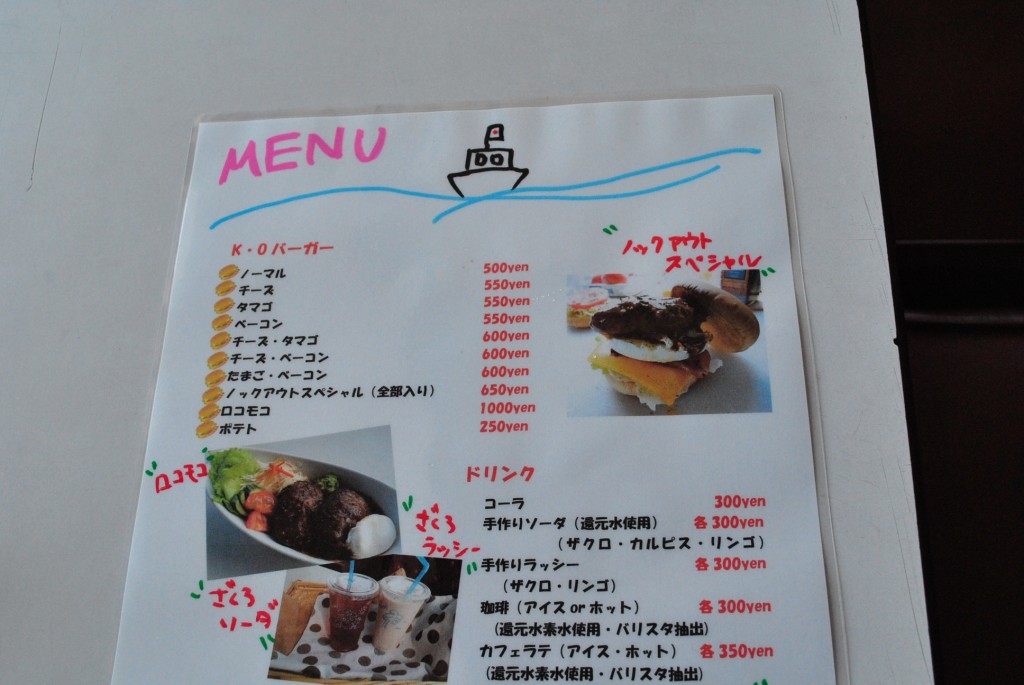 MENU
K・Oバーガー
ノーマル 500yen
チーズ 550yen
タマゴ 550yen
ベーコン 550yen
チーズ・タマゴ 600yen
チーズ・ベーコン 600yen
たまご・ベーコン 600yen
ノックアウトスペシャル（全部入り） 650yen
ロコモコ 1000yen
ポテト 250yen
ノックアウト
スペシャル
ロコモコ
ざくろ
ラッシー
ざくろ
ソーダ
ドリンク
コーラ 300yen
手作りソーダ（還元水使用） 各300yen
（ザクロ・カルピス・リンゴ）
手作りラッシー 各300yen
（ザクロ・リンゴ）
珈琲（アイスorホット） 各300yen
（還元水素水使用・バリスタ抽出）
カフェラテ（アイス・ホット） 各350yen
（還元水素水使用・バリスタ抽出）